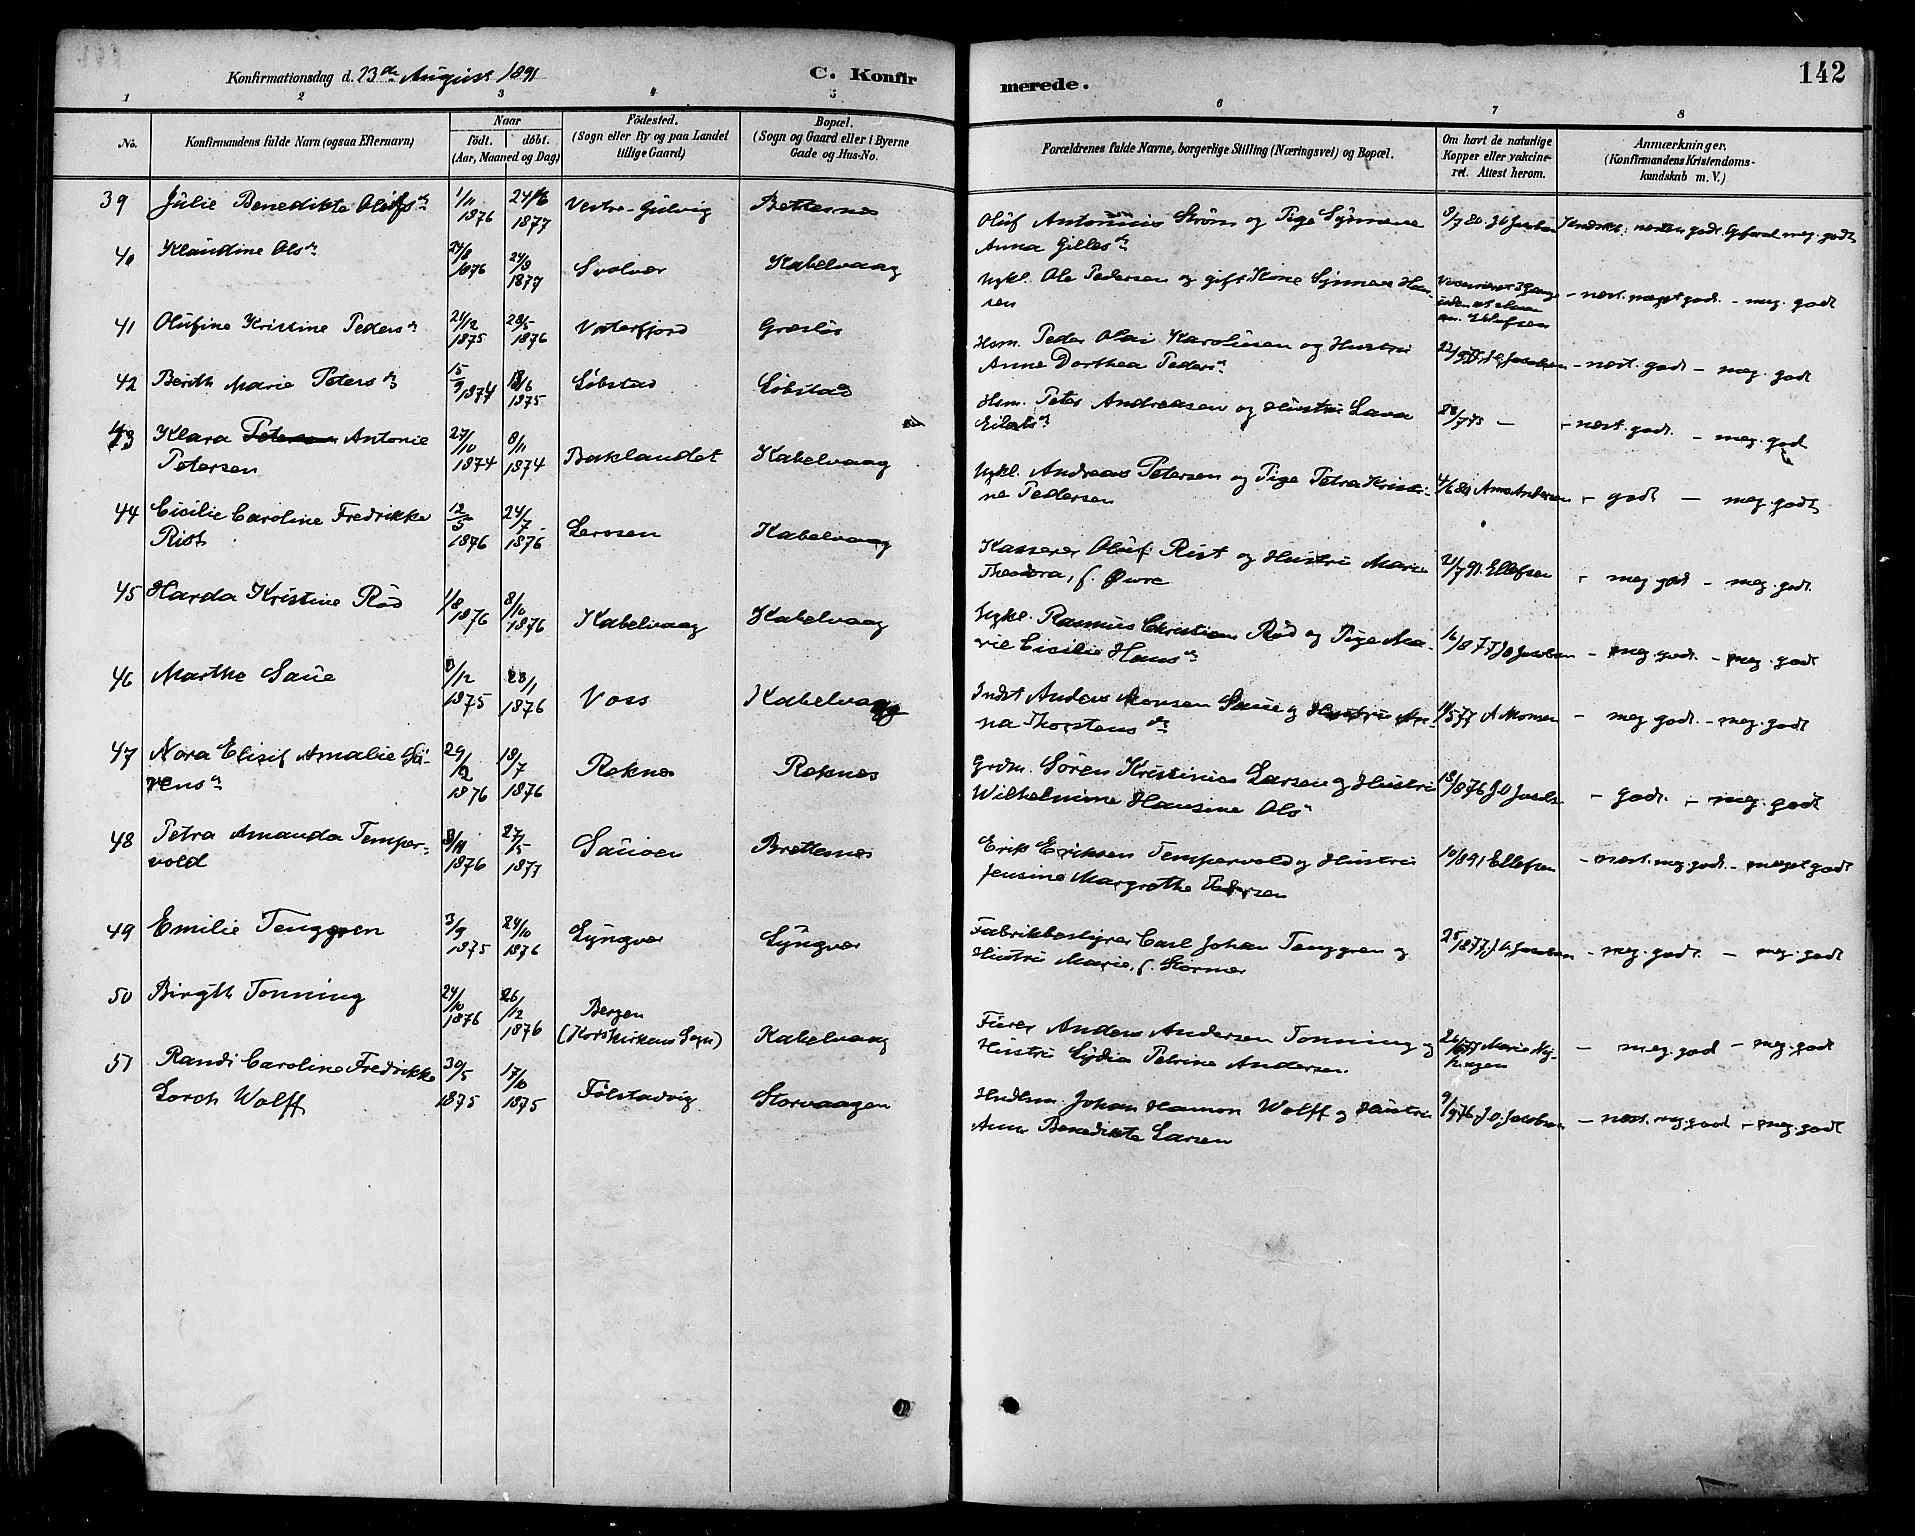 Konfirmationsdag d. 23de August 1891 C. Konfirmerede. 142
1 2 3 4 5 6 7 8
No. Konfirmandens fulde Navn (ogsaa Efternavn) Naar födt. döbt. (Aar, Maaned og Dag) Födested. (Sogn eller By og paa Landet tillige Gaard) Bopæl. (Sogn og Gaard eller i Byerne Gade og Hus-No. Forældrenes fulde Navne, borgerlige Stilling (Næringsvei) og Bopæl. Om havt de naturlige Kopper eller vakcineret. Attest herom. Anmærkninger. (Konfirmandens Kristendomskundskab m. V.)
39 Julie Benedikte Olufsd. 1/11 1876 1877 Vestre-Gulvig Bettesnes Oluf Antonius Strøm og Pige Synneve
Anna Gillesd. meg. godt
40 Klaudine Olsd. 1876 24/3 1877 Svolvær Kabelvaag Ugkl. Ole Pedersen og gift Kone Synneve Hansen - næst. meget godt. - meg. godt
41 Olufine Kristine Pedersd. 21/12 1875 28/5 1876 Vaterfjord Græslös Hsm. Peder Olai Karolusen og Hustru
Anne Dorthea Pedersd. - næst. godt - meg. godt
42 Berith Marie Petersd. 15/9 1874 1875 Löbstad Löbstad Hsm. Peter Andreasen og Hustru Lava
Eilertsd. - næst. godt. - meg. god
43 Klara Petersen Antonie
Petersen 27/10 1874 8/11 1874 Baklandet Kabelvaag Ugkl. Andreas Petersen og Pige Petra Kristine Pedersen 4/6 80 Arne Andersen - godt - meg. godt
44 Cicilie Caroline Fredrikke
Rist 12/5 1876 24/7 1876 Kabelvaag Kasserer Oluf Rist og Hustru Marie
Theodora, f. Øwre 21/7 91. Ellefsen - meg god - meg. godt.
45 Harda Kristine Röd 1/8 1876 8/10 1876 Kabelvaag Kabelvaag Ugkl. Rasmus Christian Röd og Pige Marie Cicilie Hansd. 16/8 77 J O Jacobsen - meg. godt. - meg. godt
46 Marthe Saue 1875 23/1 1876 Voss Kabelvaag Indst Anders Monsen Saue og Hustru Anna Thorstensd. A Monsen - meg godt. - meg. godt
47 Nora Elisif Amalie Sörensd. 1876 18/7 1876 Reknes Reknes Grdm. Sören Kristinius Larsen og Hustru
Wilhelmine Hansine Olsd. 18/8 76 - godt. - meg. godt
48 Petra Amanda Tempervold 1876 27/5 1877 Brettesnes Erik Eriksen Tempervold og Hustru
Jensine Margrethe Pedersen 10/8 91 Ellefsen - næst. meg. godt. - meget godt
49 Emilie Tenggren 3/9 1875 24/10 1876 Lyngvær Lyngvær Fabrikbestyrer Carl Johan Tenggren og
Hustru Marie, f. Stormer 25/8 77. J.O. Jacobsen - meg. godt. - meg. godt
50 Birgith Tonning 24/10 1876 26/12 1876 Bergen
(Korskirkens Sogn) Kabelvaag Furer Anders Andersen Tonning og
Hustru Lydia Petrine Andersen - meg. god - meg. godt
51 Randi Caroline Fredrikke
Lorch Wolff 30/5 1875 17/10 1875 Fölstadvig Storvaagen Hndlsm. Johan Hannon Wolff og Hustru
Anne Benedikte Larsen 9/9 76. J.O. Jacobsen - næst. meg god - meg. godt